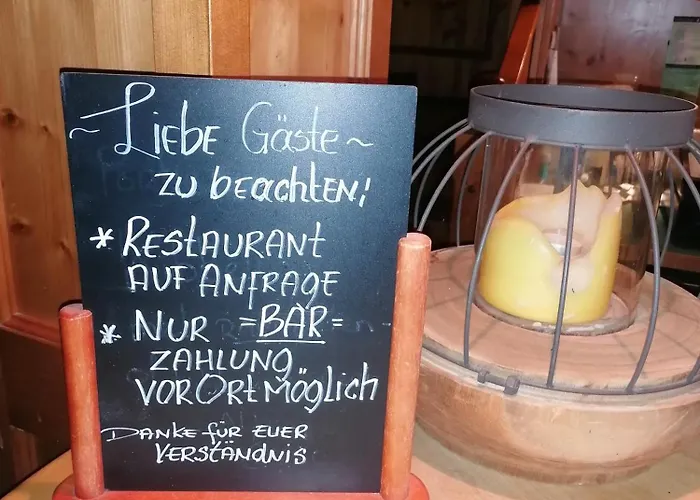 ~ Liebe Gäste ~
zu beachten!
* Restaurant
auf Anfrage
* Nur =BAR=
Zahlung
vor Ort möglich
Danke für euer
Verständnis